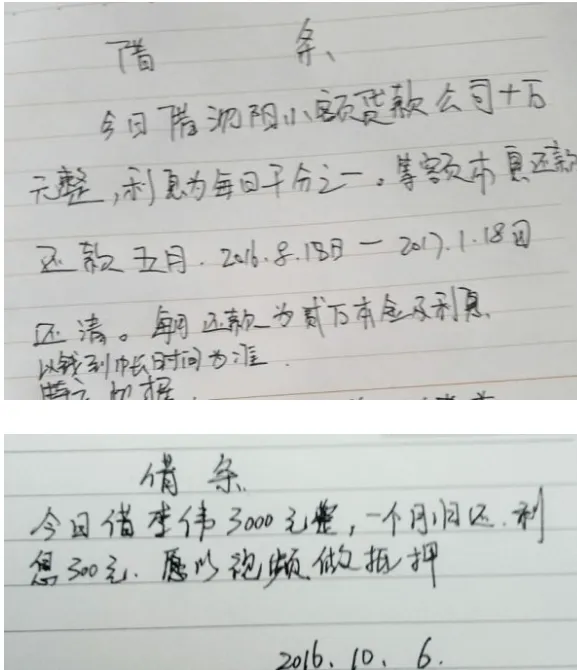 借 条
今日借沈阳小额贷款公司十万
元整,利息为每日千分之一。等额本息还款
还款五月.2016.8.18日一2017.1.18日
还清。每月还款为贰万本金及利息.
以钱到帐时间为准.
特立此据.
借条
今日借李伟3000元整,一个月归还.利
息300元.愿以视频做抵押
2016.10.6.